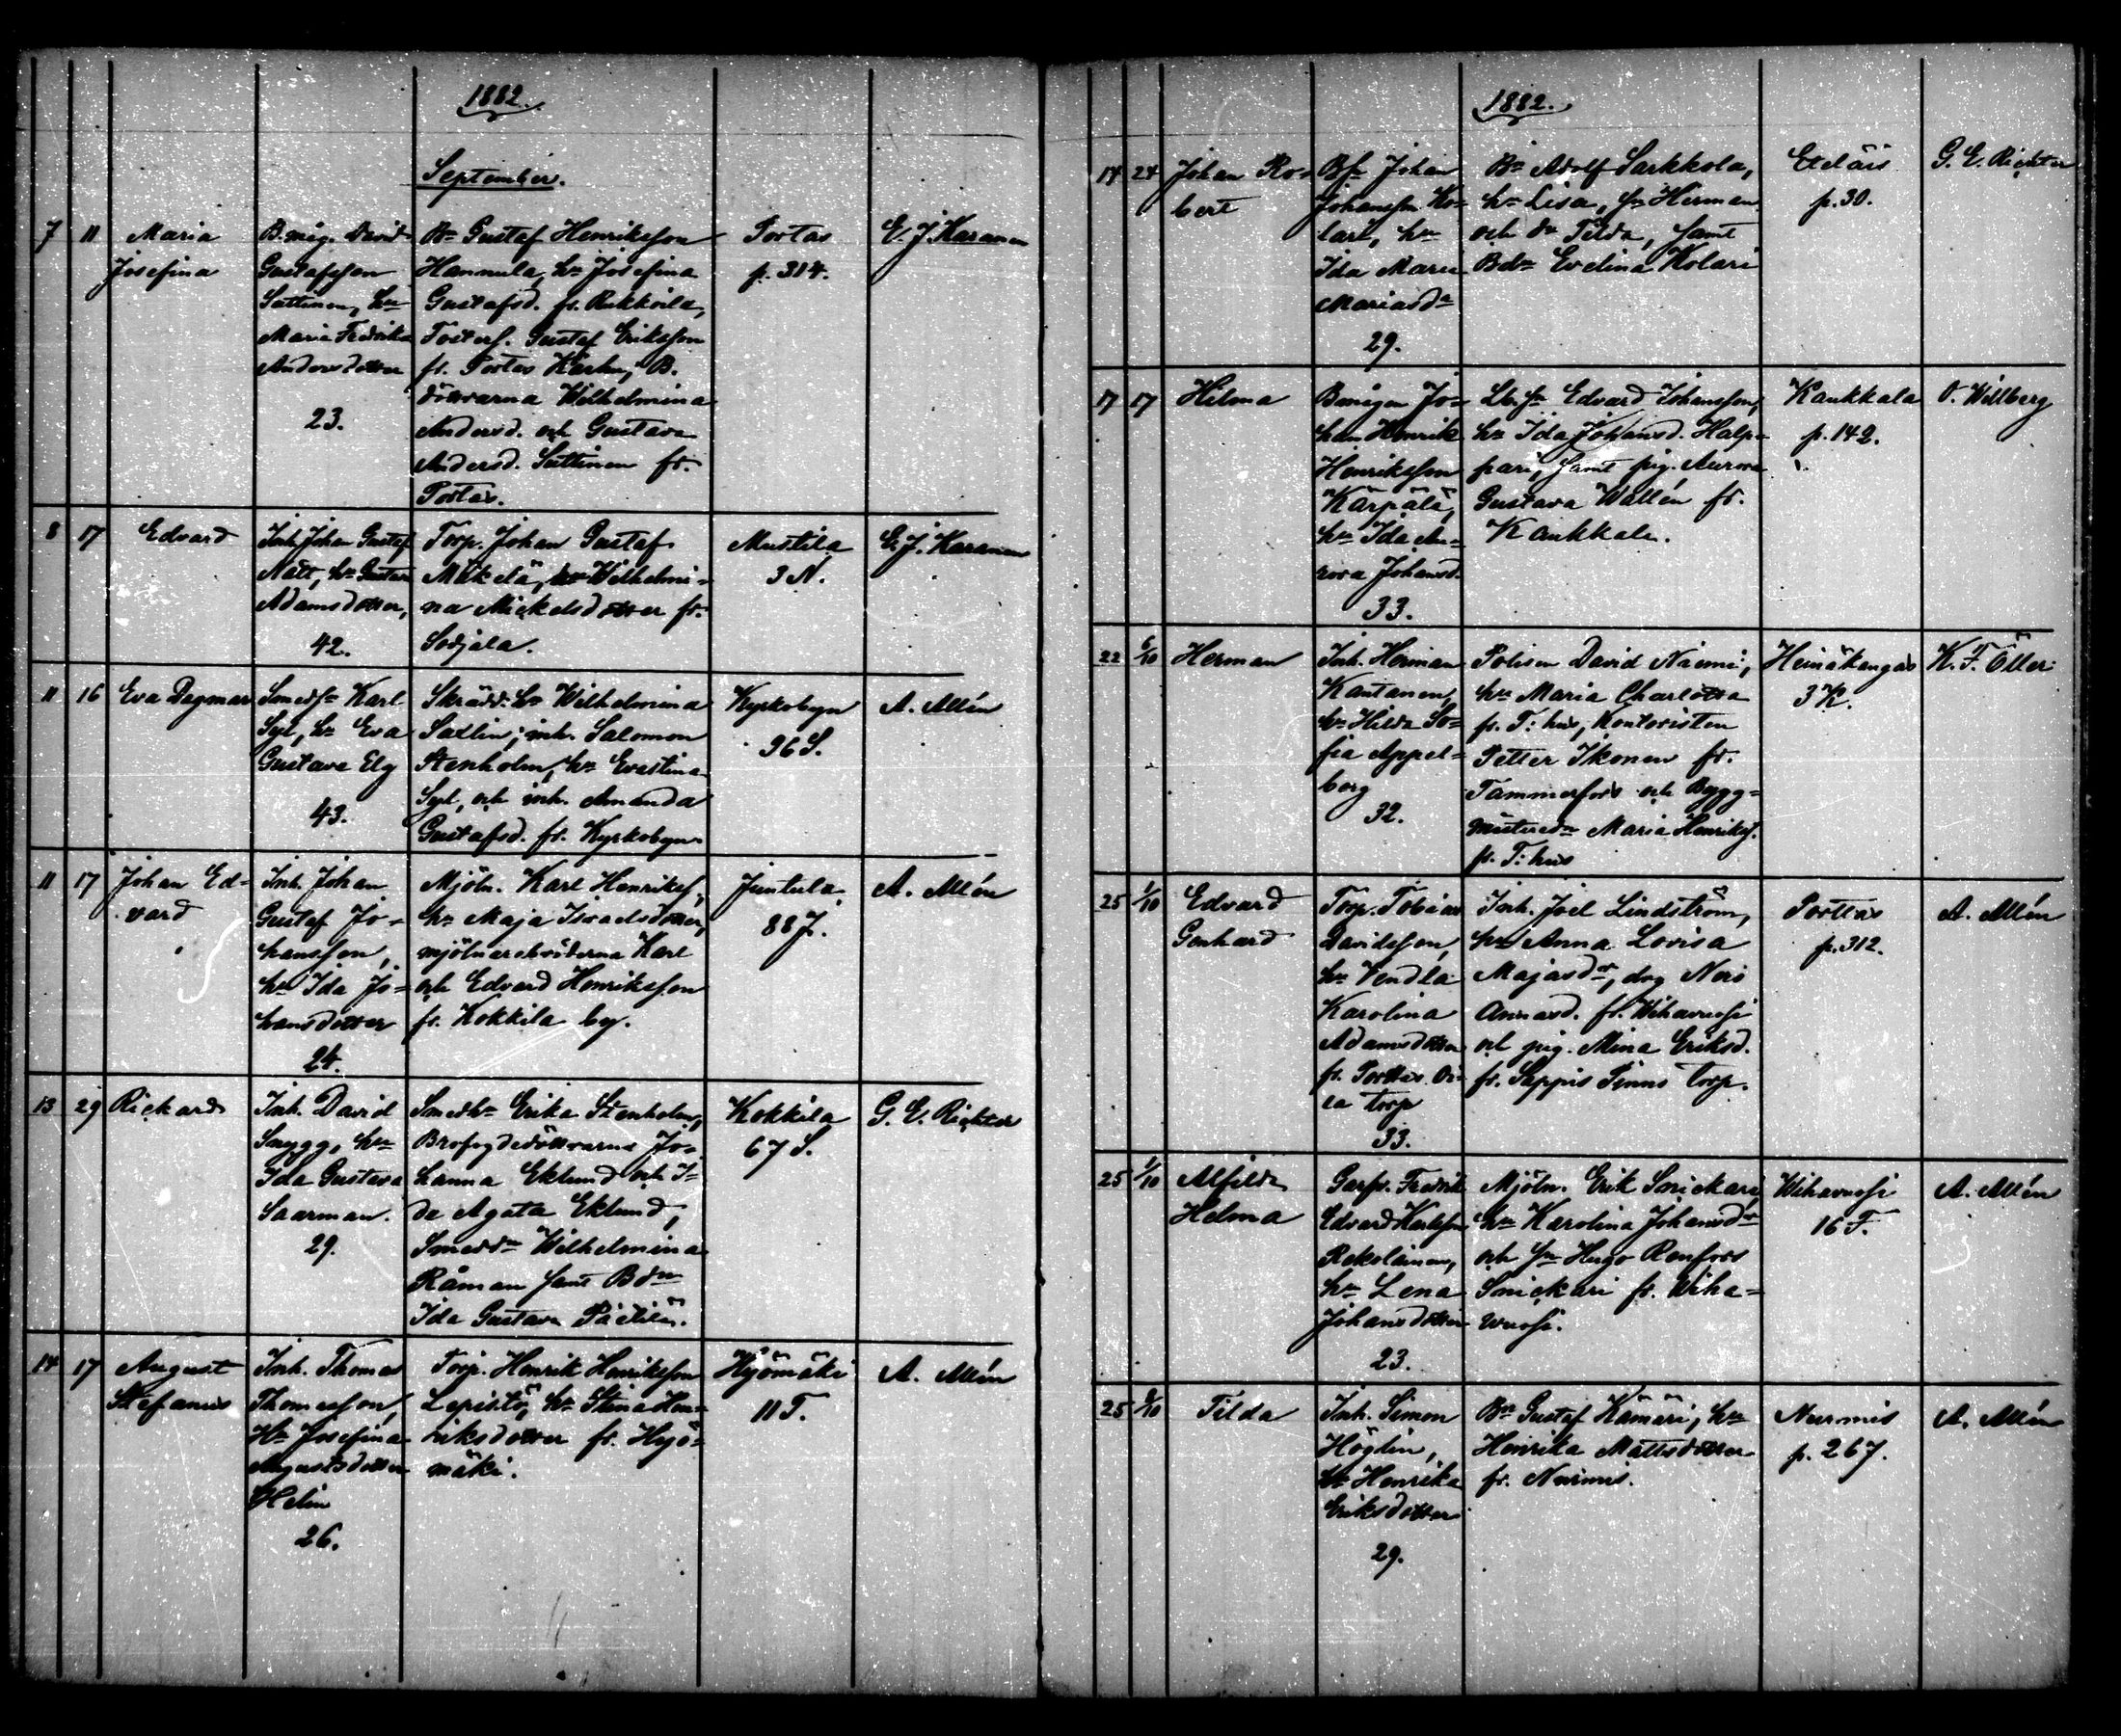 1882.
September.
7 11 Maria Josefina
B.måg. David
Gustafsson
Suttinen, hu
Maria Fredrika
Andersdotter
23.
Bn Gustaf Henriksson
Hannula, hu Josefina
Gustafsd. fr. Rukkoila,
Gustaf Eriksson
fr. Portas B.
döttrarna Wilhelmina
Andersd. och Gustava
Andersd. Suttinen fr.
Portas.
Portas
p. 314.
E. J. Karanen
8 17 Edvard
Inh. Johan Gustaf
Nätt, hu Gustava
Adamsdotter,
42.
Torp. Johan Gustaf
Mäkelä, hu Wilhelmi-
na Mickelsdotter fr.
Sodjala.
Mustila
3 N.
E. J. Karanen
11 16 Eva Dagmar
Smedsn Karl
Syl, hu Eva
Gustava Elg
43.
Skrädd. hu Wilhelmina
Saxlin, inh. Salomon
Stenholm, hu Evastina
Syl, och inh. Amanda
Gustafsd. fr. Kyrkobyn
Kyrkobyn
96 S.
A. Allén
11 17 Johan Ed-
vard
Inh. Johan
Gustaf Jo-
hansson,
hu Ida Jo-
hansdotter
24.
Mjöln. Karl Henrikss,
hu Maja Israelsdotter,
Karl
och Edvard Henriksson
fr. Kokkila by.
Juntula
88 J.
A. Allén
13 29 Rickard
Inh. David
Snygg, hu
Ida Gustava
Saarman.
29.
Smedhu Erika Stenholm,
Brofogdedöttrarna Jo-
hanna Eklund och I-
da Agata Eklund,
Smeddr Wilhelmina
Råman samt Bdn
Ida Gustava Päätilä.
Kokkila
67 S.
G. E. Richter
14 17 August
Stefanus
Inh. Thomas
Thomasson,
Hu Josefina
Augustsdotter
Helin
26.
Torp. Henrik Henriksson
Lepistö, hu Stina Hen-
riksdotter fr. Hyö-
mäki.
Hyömäki
11 T.
A. Allén
1882.
14 24 Johan Ro-
bert
Bsn Johan
Johansson Ko-
lari, hu
Ida Maria
Mariasdr
29.
Bn Adolf Sarkkola,
hu Lisa, sn Herman
och dr Tilda, samt
Bdn Evelina Kolari
Eteläis
p. 30.
G. E. Richter
17 17 Hilma
Bmågen Jo-
han Henrik
Henriksson
Kärpälä,
hu Ida Au-
rora Johansd.
33.
Lbsn Edvard Johansson,
hu Ida Johansd. Halp-
pari, samt pig. Aurora
Gustava Wallén fr.
Kaukkala.
Kaukkala
p. 142.
O. Willberg
22 6/10 Herman
Inh. Herman
Kantanen,
hu Hilda So-
fia Appel-
berg
32.
Polisen David Niemi,
hu Maria Charlotta
fr. T:hus, Kontoristen
Petter Ikonen fr.
Tammerfors och Bygg-
Maria Henrikss.
fr. T:hus
Heinäkangas
3 K.
K. F. Öller
25 1/10 Edvard
Gerhard
Torp. Tobias
Davidsson,
hu Vendla
Karolina
Adamsdotter
fr. Portas
torp
33.
Inh. Joel Lindström,
hu Anna Lovisa
Majasdr, drg
Annasd. fr. Wihavuosi
och pig. Mina Eriksd.
fr. Seppis torp.
Porttas
p. 312.
A. Allén
25 1/10 Alfilda
Helma
Garfv. Fredrik
Edvard Karlsson
Rekolainen,
hu Lena
Johansdotter
23.
Mjöln. Erik Snickari
hu Karolina Johansdr
och sn Hugo Renfors
Snickari fr. Wiha-
wuosi.
Wihavuosi
16 F.
A. Allén
25 8/10 Tilda
Inh. Simon
Höglin,
hu Henrika
Eriksdotter
29.
Bn Gustaf Kämäri, hu
Henrika Mattsdotter
fr. Nurmis.
Nurmis
p. 267.
A. Allén